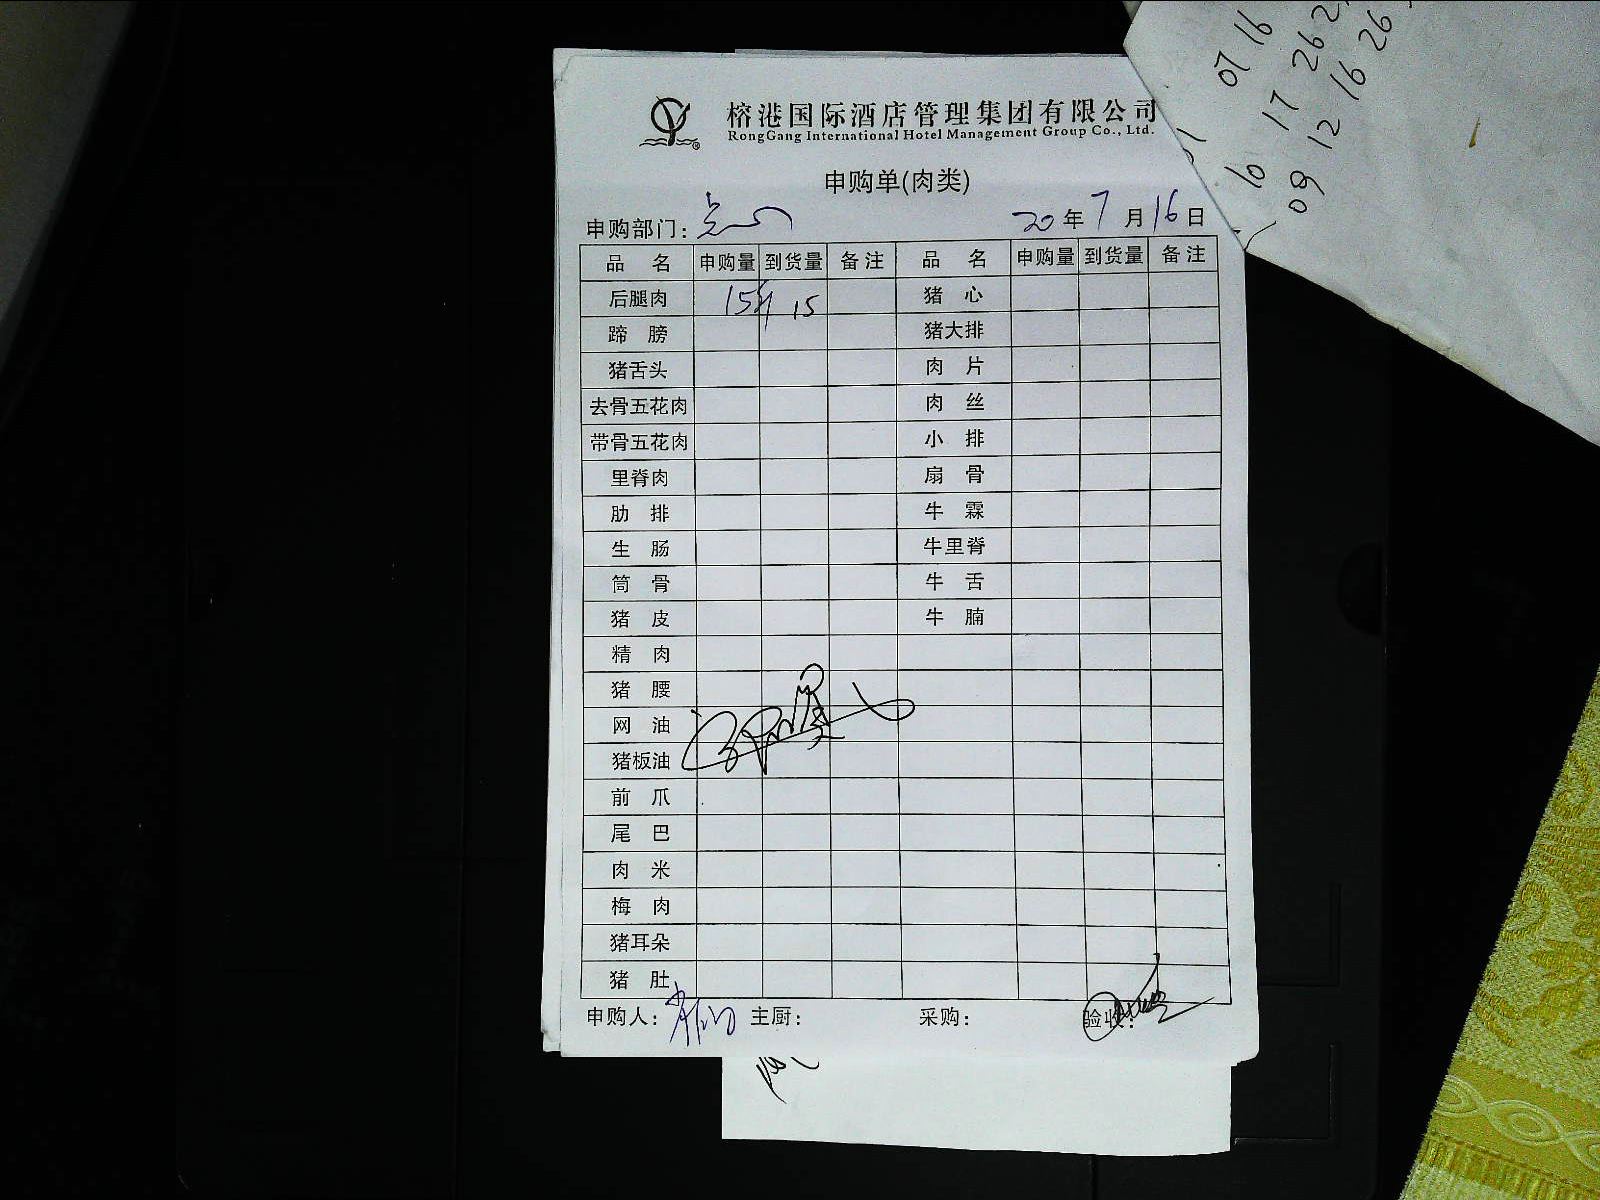 榕港国际酒店管理集团有限公司
RongGang International Hotel Management Group Co., Ltd.
申购单(肉类)
申购部门：点心 20年7月16日
品 名 申购量 到货量 备注 品 名 申购量 到货量 备注
后腿肉 15斤 15 猪 心
蹄 膀 猪大排
猪舌头 肉 片
去骨五花肉 肉 丝
带骨五花肉 小 排
里脊肉 扇 骨
肋 排 牛 霖
生 肠 牛里脊
筒 骨 牛 舌
猪 皮 牛 腩
精 肉
猪 腰
网 油
猪板油
前 爪
尾 巴
肉 米
梅 肉
猪耳朵
猪 肚
申购人： 主厨： 采购： 验收：
07 16
10 17 26
09 12 16 26